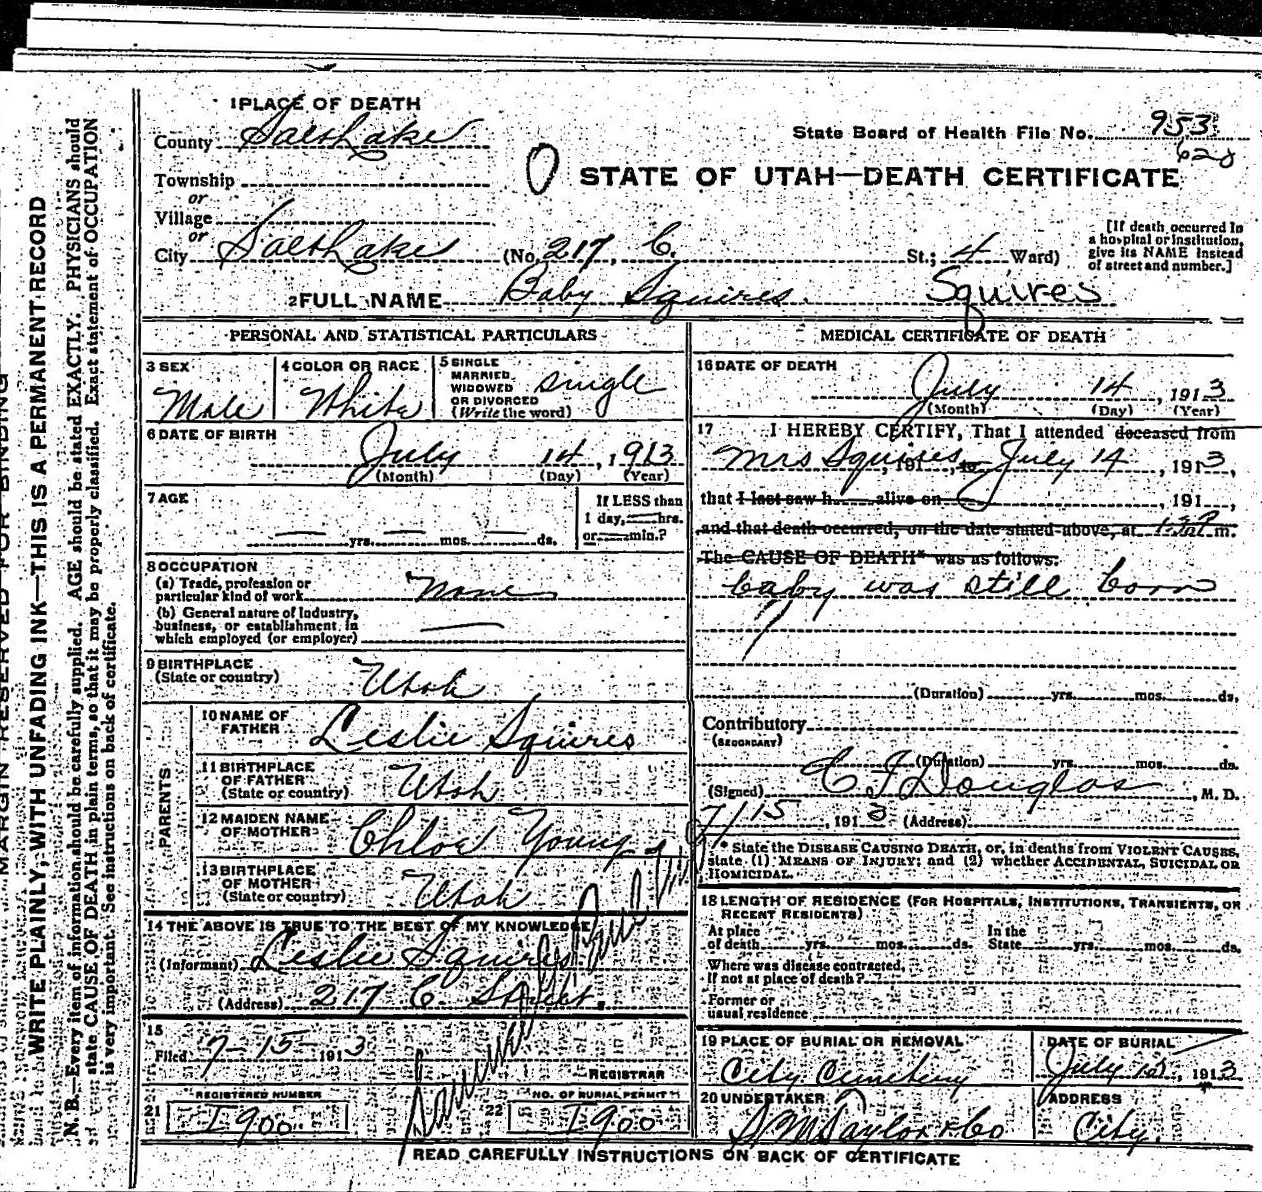 1 PLACE OF DEATH
County Salt Lake
State Board of Health File No. 953
620
Township
or
Village
or
STATE OF UTAH—DEATH CERTIFICATE
City Salt Lake (No. 217, C. St.; 4 Ward)
[If death occurred in a hospital or institution, give its NAME instead of street and number.]
2 FULL NAME Baby Squires. Squires
PERSONAL AND STATISTICAL PARTICULARS
3 SEX
Male
4 COLOR OR RACE
White
5 SINGLE
MARRIED
WIDOWED
OR DIVORCED
(Write the word)
single
6 DATE OF BIRTH
July 14, 1913
(Month) (Day) (Year)
7 AGE
yrs. mos. ds.
If LESS than
1 day, hrs.
or min.?
8 OCCUPATION
(a) Trade, profession or
particular kind of work None
(b) General nature of Industry,
business, or establishment in
which employed (or employer)
9 BIRTHPLACE
(State or country) Utah
PARENTS
10 NAME OF
FATHER Leslie Squires
11 BIRTHPLACE
OF FATHER
(State or country) Utah
12 MAIDEN NAME
OF MOTHER Chloe Young
13 BIRTHPLACE
OF MOTHER
(State or country) Utah
14 THE ABOVE IS TRUE TO THE BEST OF MY KNOWLEDGE
(Informant) Leslie Squires
(Address) 217 C Street.
15
Filed 7-15- 1913
REGISTRAR
REGISTERED NUMBER
21 1900.
NO. OF BURIAL PERMIT
22 1900
MEDICAL CERTIFICATE OF DEATH
16 DATE OF DEATH
July 14, 1913
(Month) (Day) (Year)
17 I HEREBY CERTIFY, That I attended deceased from
Mrs Squires, 191 , to July 14, 1913,
that I last saw h alive on , 191 ,
and that death occurred, on the date stated above, at m.
The CAUSE OF DEATH* was as follows:
baby was still born
(Duration) yrs. mos. ds.
Contributory
(SECONDARY)
(Duration) yrs. mos. ds.
(Signed) C F Douglas, M. D.
7/15, 1913 (Address)
* State the DISEASE CAUSING DEATH, or, in deaths from VIOLENT CAUSES,
state (1) MEANS OF INJURY; and (2) whether ACCIDENTAL, SUICIDAL OR
HOMICIDAL.
18 LENGTH OF RESIDENCE (FOR HOSPITALS, INSTITUTIONS, TRANSIENTS, OR
RECENT RESIDENTS)
At place
of death yrs. mos. ds.
In the
State yrs. mos. ds.
Where was disease contracted,
If not at place of death?
Former or
usual residence
19 PLACE OF BURIAL OR REMOVAL
City Cemetery
DATE OF BURIAL
July 15, 1913
20 UNDERTAKER
S M Taylor & Co
ADDRESS
City.
READ CAREFULLY INSTRUCTIONS ON BACK OF CERTIFICATE
MARGIN RESERVED FOR BINDING
WRITE PLAINLY, WITH UNFADING INK—THIS IS A PERMANENT RECORD
N. B.—Every item of information should be carefully supplied. AGE should be stated EXACTLY. PHYSICIANS should
state CAUSE OF DEATH in plain terms, so that it may be properly classified. Exact statement of OCCUPATION
is very important. See instructions on back of certificate.